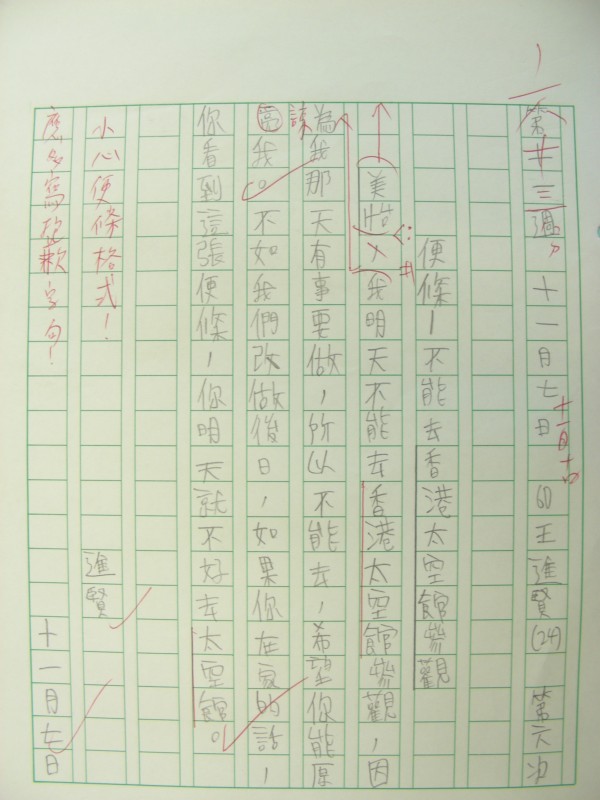 第十三週 十一月七日 6D王進賢(24) 第六次
十一月十四
便條-不能去香港太空館參觀
美怡:我明天不能去香港太空館參觀,因
為我那天有事要做,所以不能去,希望你能原
諒
我。不如我們改做後日,如果你在家的話,
你看到這張便條,你明天就不好去太空館。
進賢
小心便條格式!
十一月七日
應多寫抱歉字句!